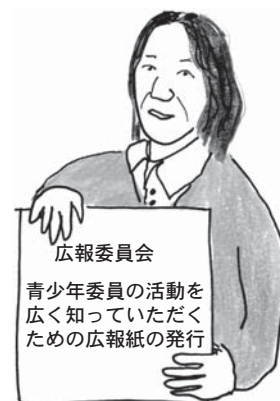 広報委員会
青少年委員の活動を
広く知っていただく
ための広報紙の発行